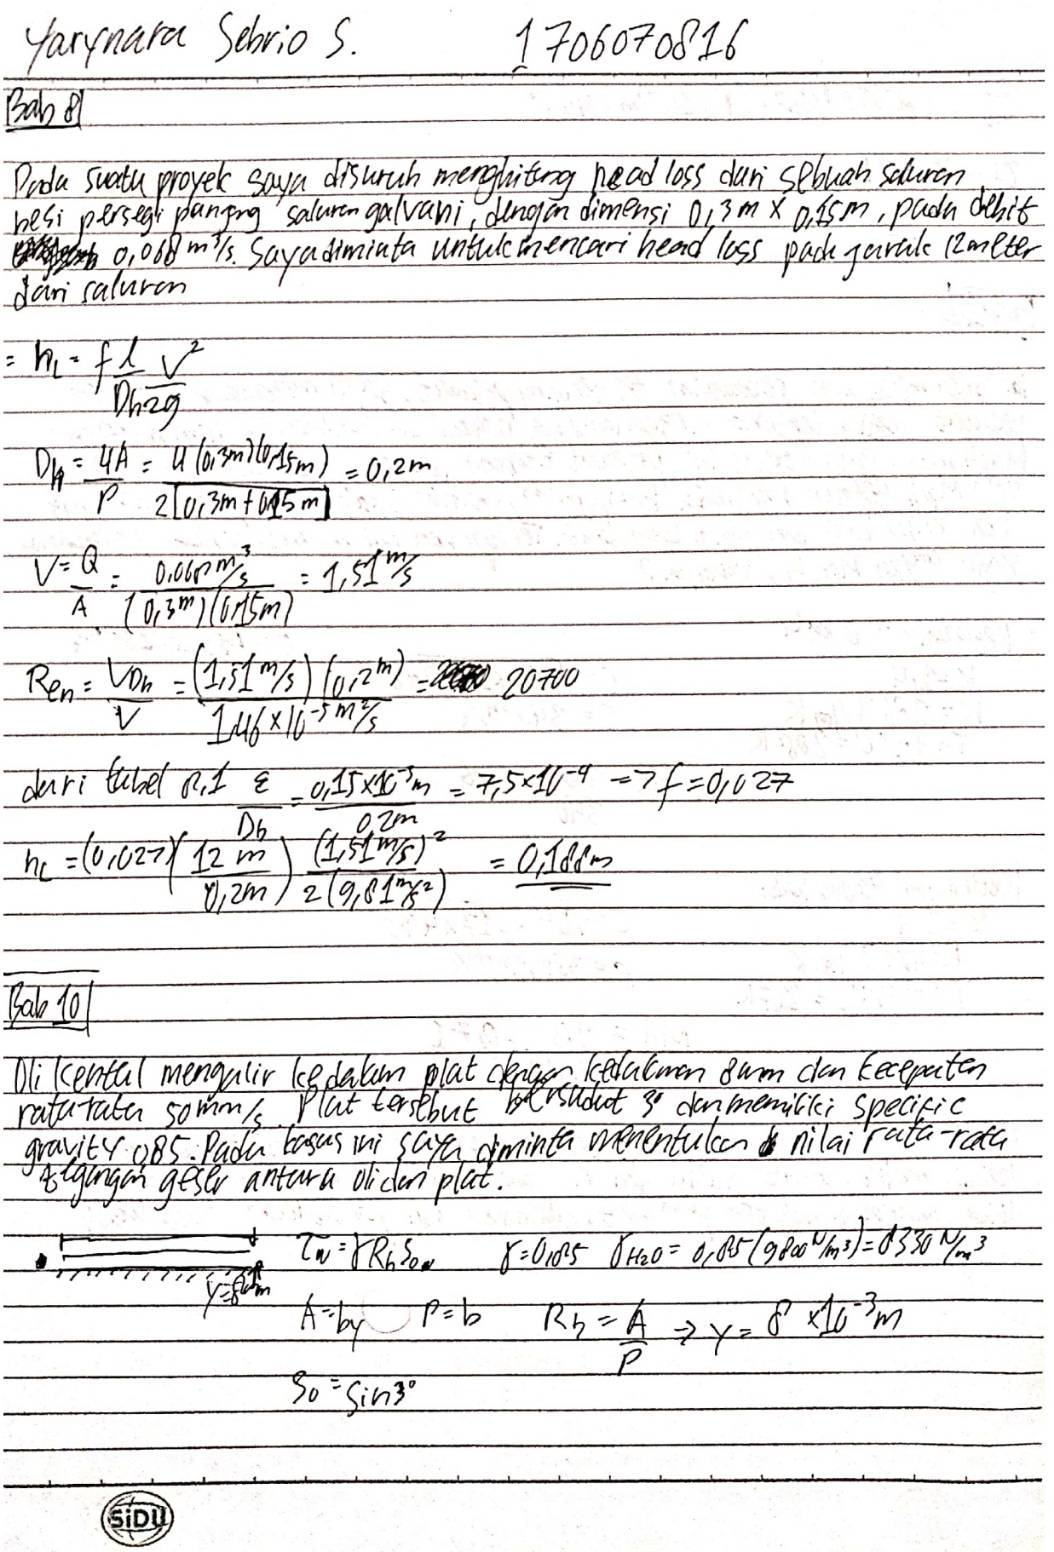 Yarynara Sebrio S. 1706070816
Bab 8
Pada suatu proyek saya disuruh menghitung head loss dari sebuah saluran
besi persegi panjng saluran galvani, dengan dimensi 0,3m x 0,15m, pada debit
0,068 m³/s. Saya diminta untuk mencari head loss pada jarak 12 meter
dari saluran
= hL = f l/Dh V²/2g
Dh = 4A/P = 4(0,3m)(0,15m)/2[0,3m+0,15m] = 0,2m
V = Q/A = 0,068 m³/s/(0,3m)(0,15m) = 1,51 m/s
Ren = VDh/V = (1,51 m/s)(0,2m)/1,46 x 10⁻⁵ m²/s = 20700
dari tabel 8,1 ε/Dh = 0,15x10⁻³m/0,2m = 7,5x10⁻⁴ => f = 0,027
hL = (0,027)(12 m/0,2m) (1,51 m/s)²/2(9,81 m/s²) = 0,188m
Bab 10
Oli kental mengalir kedalam plat dengan kedalaman 8mm dan kecepatan
rata-rata 50mm/s. Plat tersebut bersudut 3° dan memiliki specific
gravity 0,85. Pada kasus ini saya diminta menentukan nilai rata-rata
tegangan geser antara oli dan plat.
τw = γRhSo γ = 0,85 γH2O = 0,85(9800 N/m³) = 8330 N/m³
y=8mm
A=by P=b Rh = A/P => y = 8 x10⁻³m
So = sin3°
SiDU